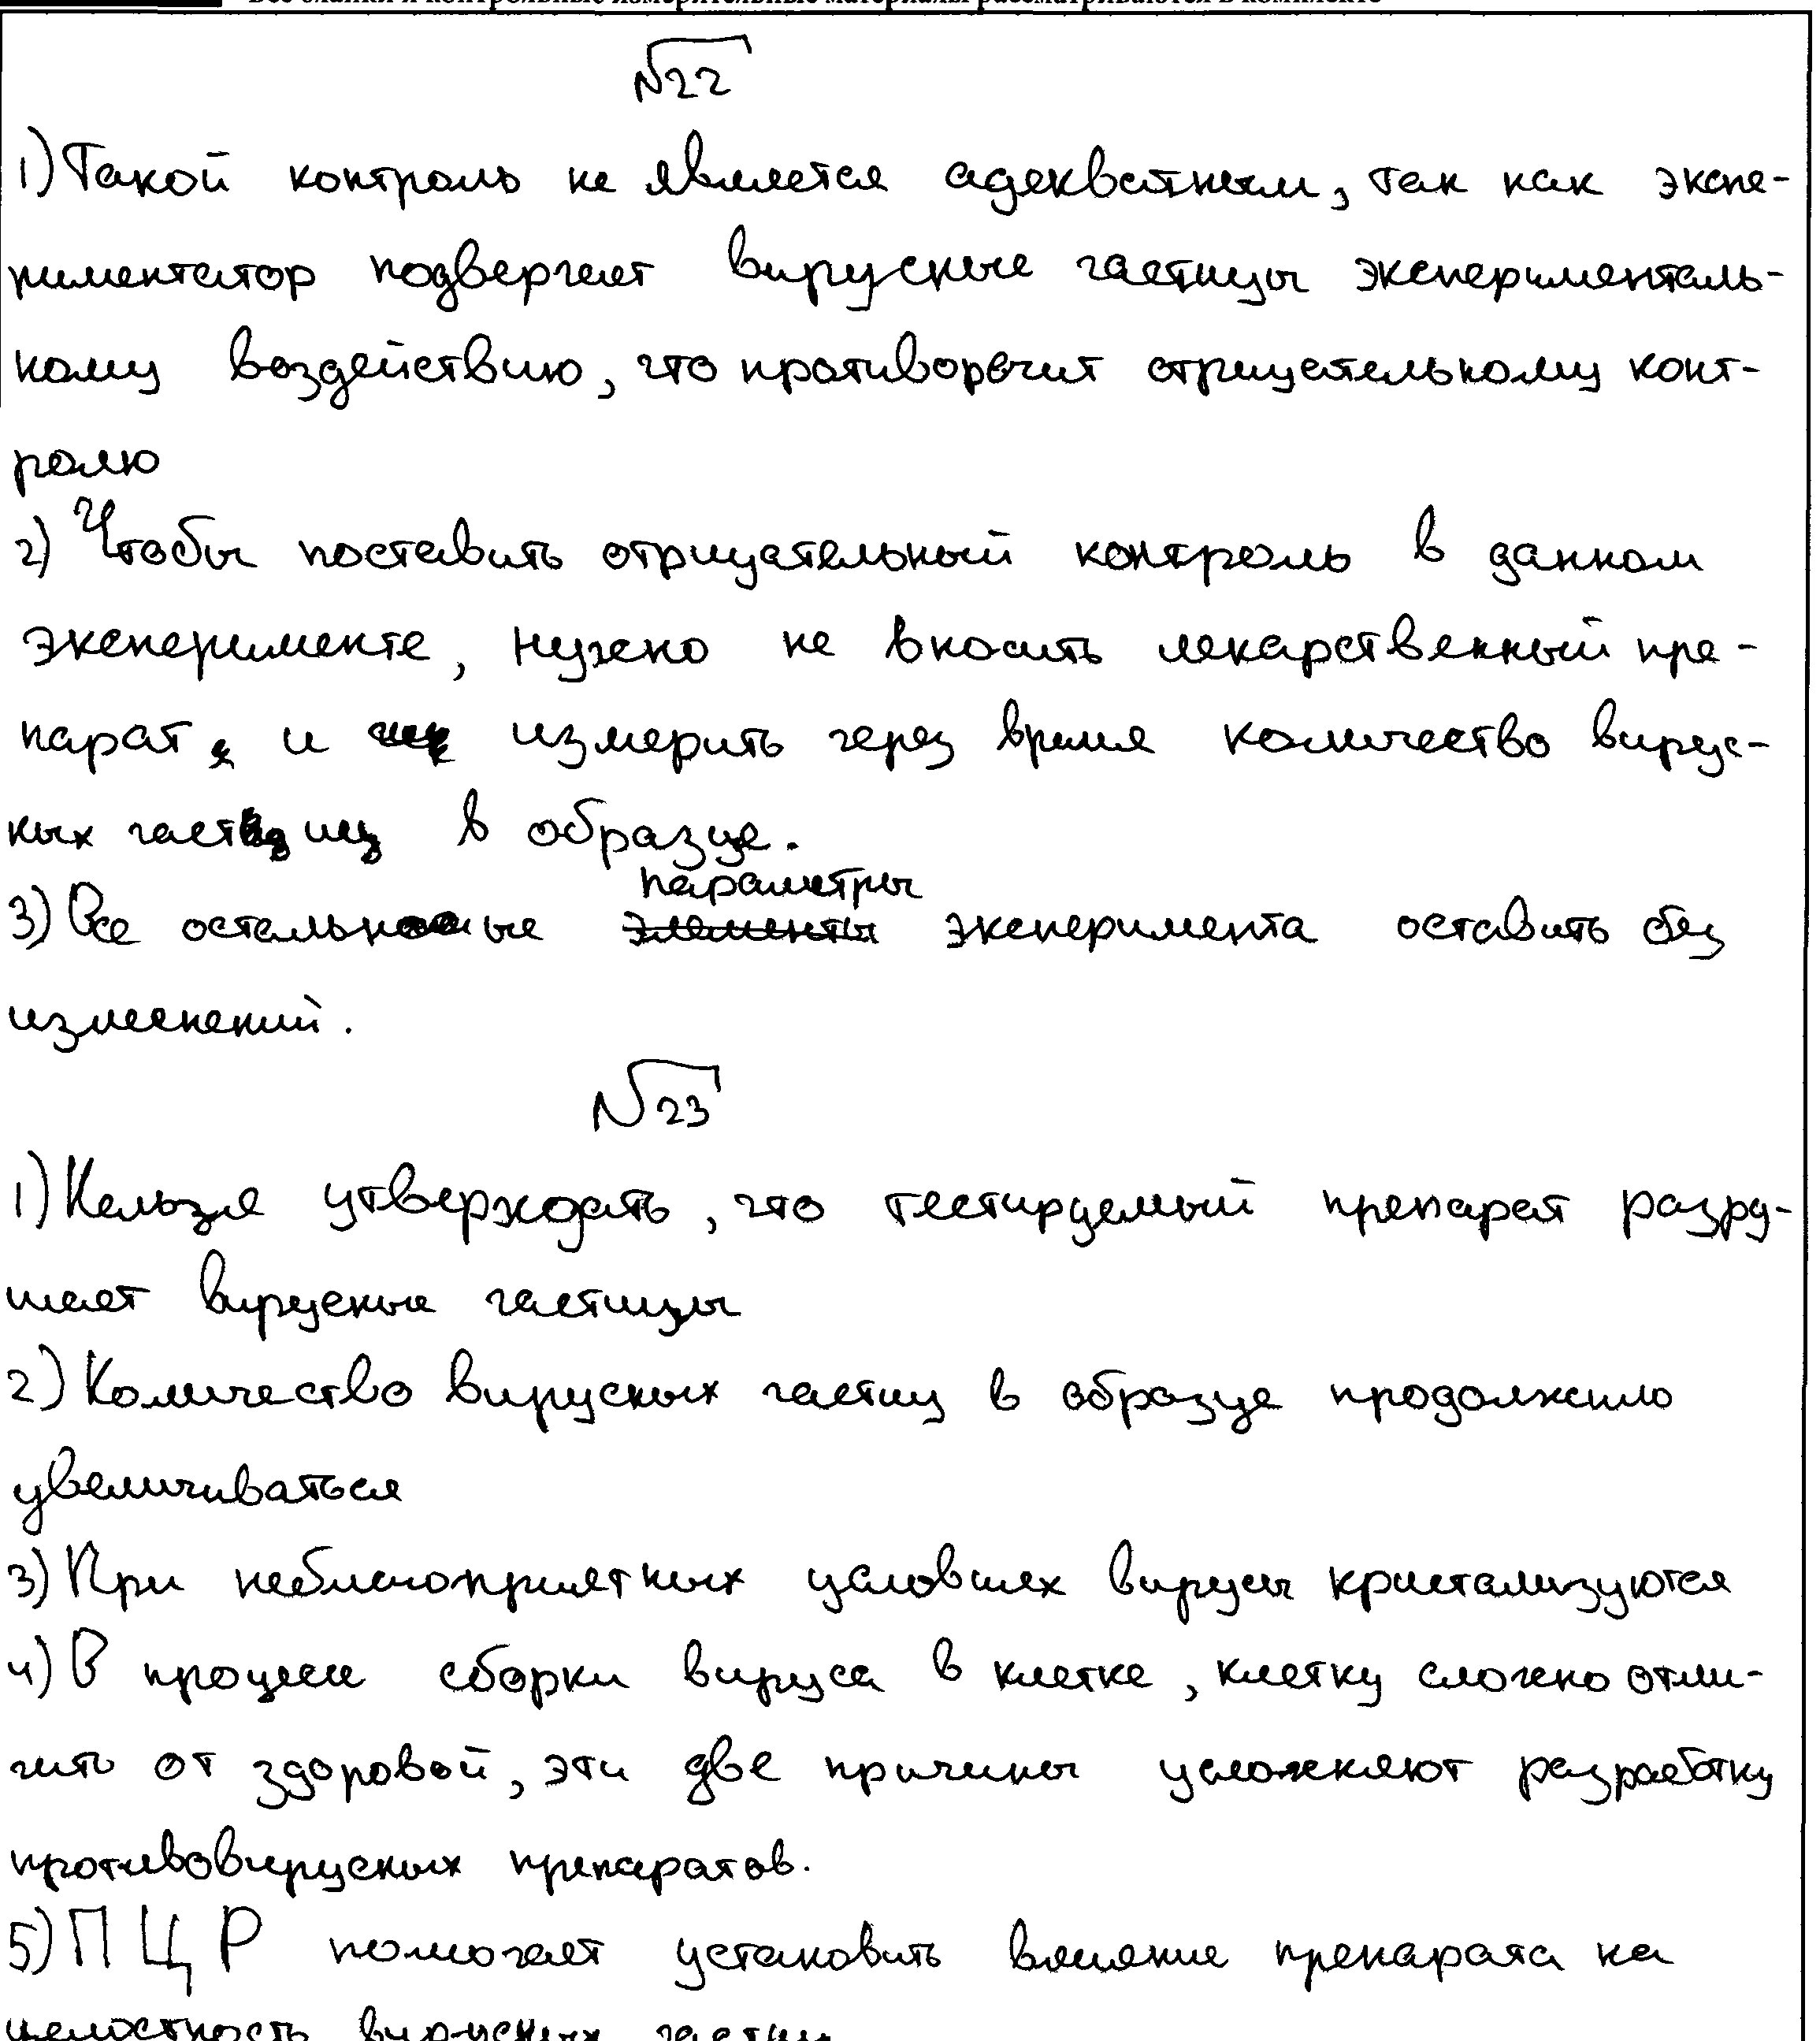 Все бланки и контрольные измерительные материалы рассматриваются в комплекте
№22
1) Такой контроль не является адекватным, так как экспе-
риментатор подвергает вирусные частицы эксперименталь-
ному воздействию, что противоречит отрицательному конт-
ролю
2) Чтобы поставить отрицательный контроль в данном
эксперименте, нужно не вносить лекарственный пре-
парат и измерить через время количество вирус-
ных частиц в образце.
параметры
3) Все остальные элементы эксперимента оставить без
изменений.
№23
1) Нельзя утверждать, что тестируемый препарат разру-
шает вирусные частицы
2) Количество вирусных частиц в образце продолжило
увеличиваться
3) При неблагоприятных условиях вирусы кристализуются
4) В процессе сборки вируса в клетке, клетку сложно отли-
чить от здоровой, эти две причины усложняют разработку
противовирусных препаратов.
5) ПЦР помогает установить влияние препарата на
целостность вирусных частиц